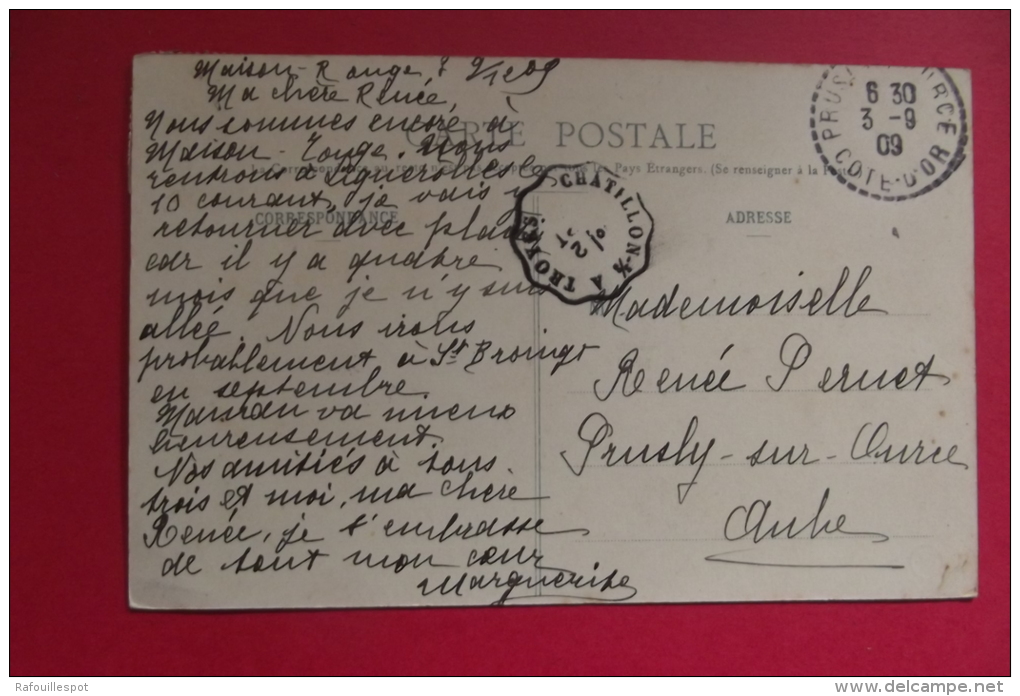 Maison-Rouge
Ma chère Renée,
Nous sommes encore à
Maison-rouge. Nous
rentrons à Lignerolles le
10 courant, je vais y
retourner avec plaisir
car il y a quatre
mois que je n'y suis
allée. Nous irons
probablement à St Broingt
en septembre.
Maman va mieux
heureusement.
Nos amitiés à tous
trois et moi, ma chère
Renée, je t'embrasse
de tout mon cœur
Marguerite
CARTE POSTALE
Pays Étrangers. (Se renseigner à la Poste)
CORRESPONDANCE
ADRESSE
Mademoiselle
Renée Pernet
Prusly-sur-Ource
Aube
CHATILLON-S/S A TROYES
PRUSLY OURCE
6 30
3 -9
09
COTE-D'OR
Rafouillespot
www.delcampe.net